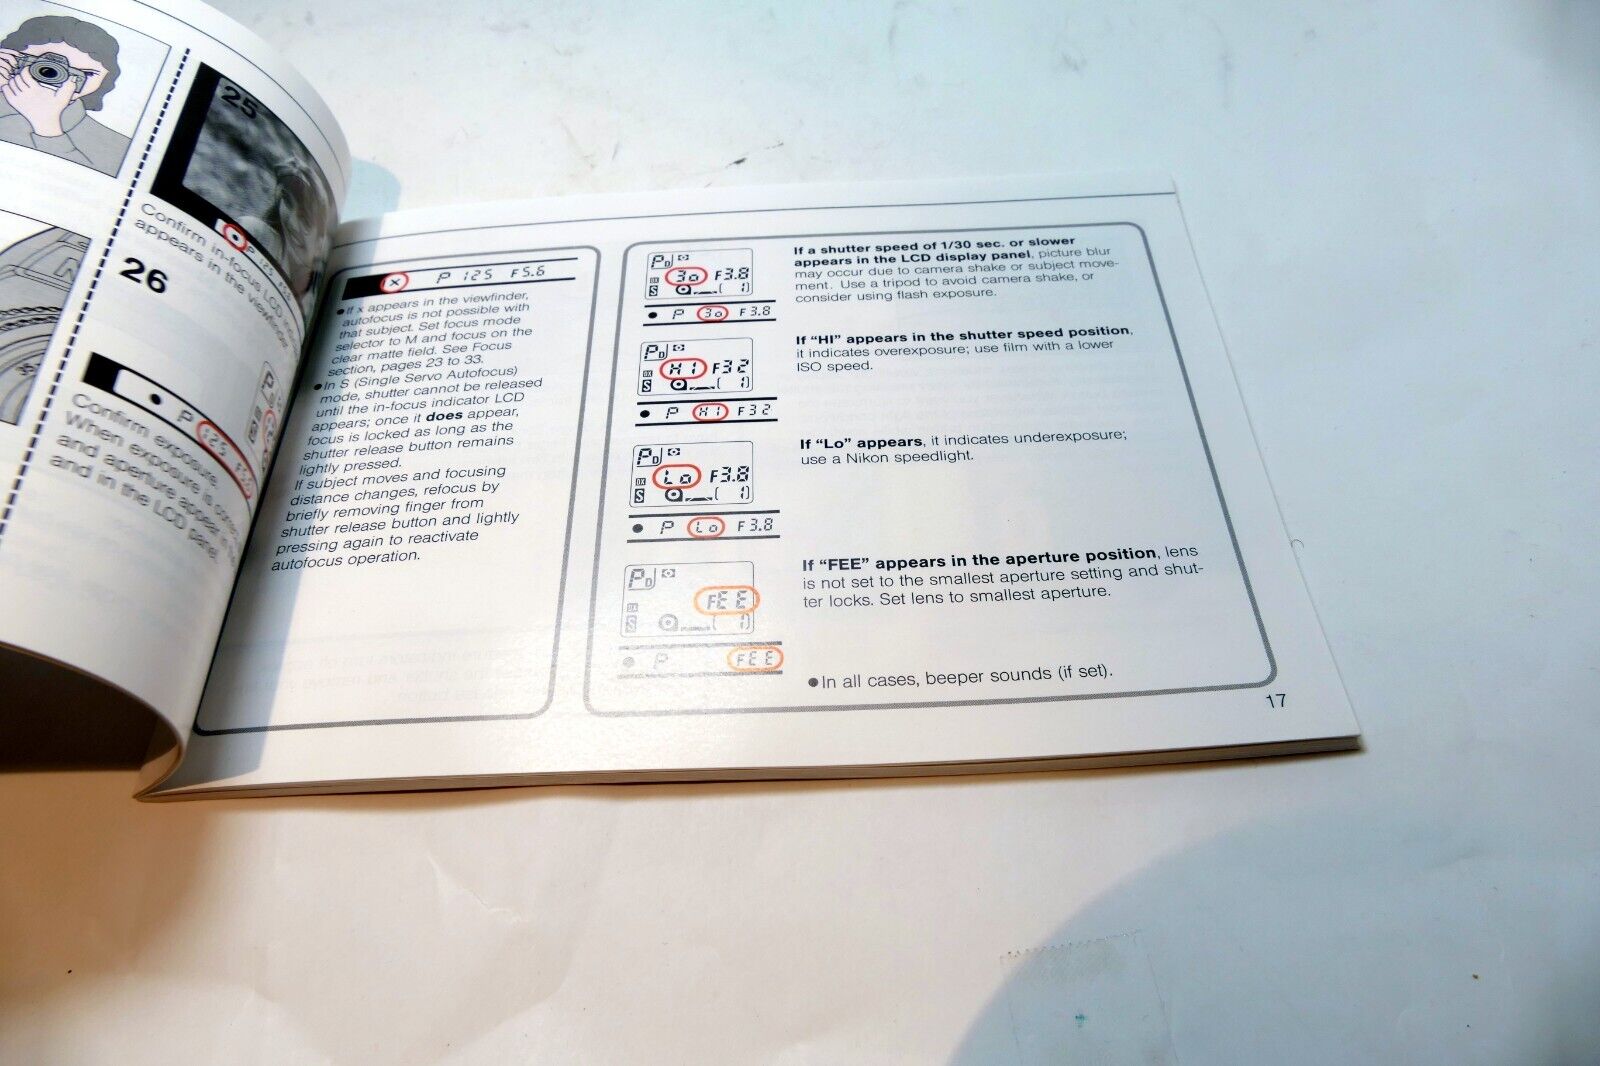 25
P 125 F5.6
Confirm in-focus LCD
appears in the viewfinder.
26
P 125 F5.6
Confirm exposure.
When exposure is correct,
and aperture appear in the
and in the LCD panel.
x P 125 F5.6
● If x appears in the viewfinder,
autofocus is not possible with
that subject. Set focus mode
selector to M and focus on the
clear matte field. See Focus
section, pages 23 to 33.
● In S (Single Servo Autofocus)
mode, shutter cannot be released
until the in-focus indicator LCD
appears; once it does appear,
focus is locked as long as the
shutter release button remains
lightly pressed.
If subject moves and focusing
distance changes, refocus by
briefly removing finger from
shutter release button and lightly
pressing again to reactivate
autofocus operation.
PD
DX 30 F3.8
S 1
● P 30 F3.8
If a shutter speed of 1/30 sec. or slower
appears in the LCD display panel, picture blur
may occur due to camera shake or subject move-
ment. Use a tripod to avoid camera shake, or
consider using flash exposure.
PD
DX HI F32
S 1
● P HI F32
If “HI” appears in the shutter speed position,
it indicates overexposure; use film with a lower
ISO speed.
PD
DX Lo F3.8
S 1
● P Lo F3.8
If “Lo” appears, it indicates underexposure;
use a Nikon speedlight.
PD
DX FEE
S 1
● P FEE
If “FEE” appears in the aperture position, lens
is not set to the smallest aperture setting and shut-
ter locks. Set lens to smallest aperture.
● In all cases, beeper sounds (if set).
17